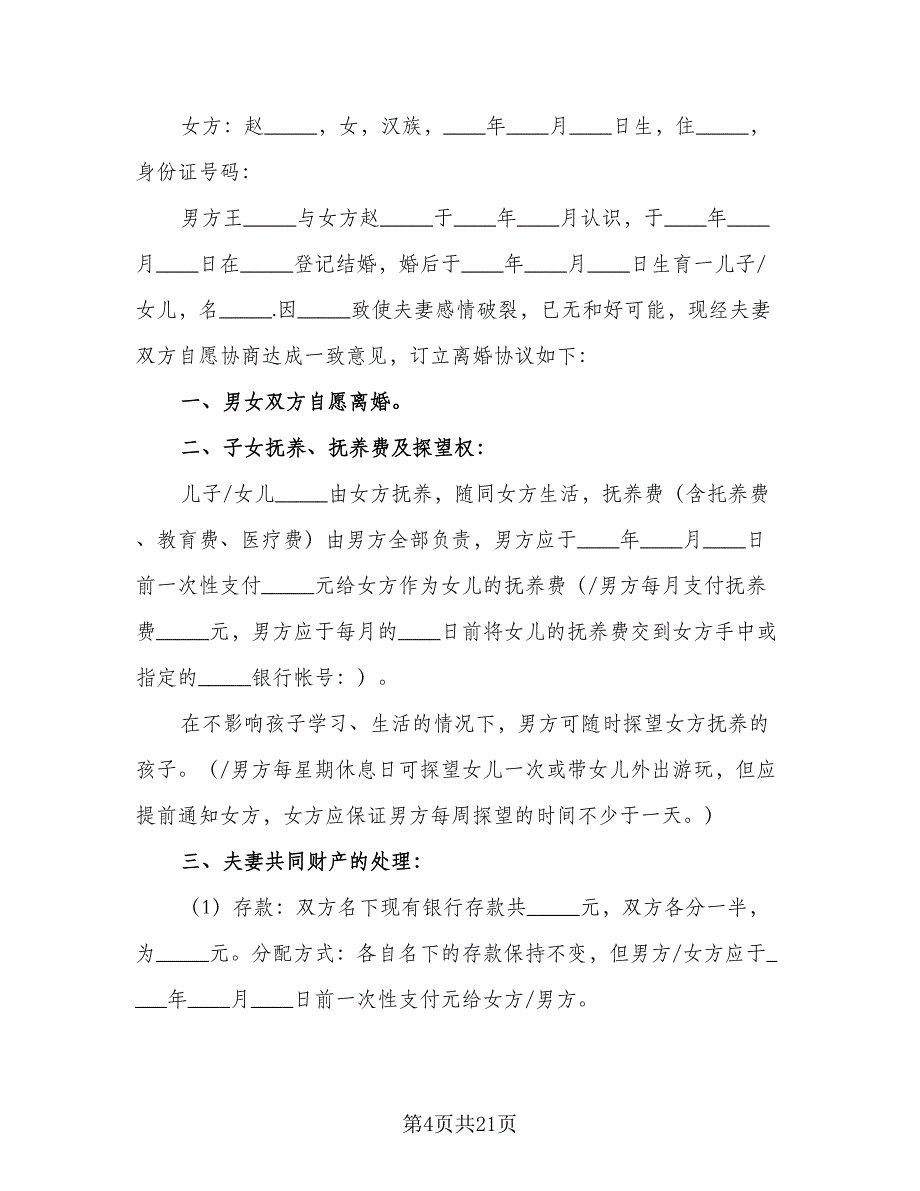 女方：赵_____，女，汉族，____年____月____日生，住_____，
身份证号码：
男方王_____与女方赵_____于____年____月认识，于____年____
月____日在_____登记结婚，婚后于____年____月____日生育一儿子/
女儿，名_____.因_____致使夫妻感情破裂，已无和好可能，现经夫妻
双方自愿协商达成一致意见，订立离婚协议如下：
一、男女双方自愿离婚。
二、子女抚养、抚养费及探望权：
儿子/女儿_____由女方抚养，随同女方生活，抚养费（含托养费
、教育费、医疗费）由男方全部负责，男方应于____年____月____日
前一次性支付_____元给女方作为女儿的抚养费（/男方每月支付抚养
费_____元，男方应于每月的____日前将女儿的抚养费交到女方手中或
指定的_____银行帐号：）。
在不影响孩子学习、生活的情况下，男方可随时探望女方抚养的
孩子。（/男方每星期休息日可探望女儿一次或带女儿外出游玩，但应
提前通知女方，女方应保证男方每周探望的时间不少于一天。）
三、夫妻共同财产的处理：
（1）存款：双方名下现有银行存款共_____元，双方各分一半，
为_____元。分配方式：各自名下的存款保持不变，但男方/女方应于_
___年____月____日前一次性支付元给女方/男方。
第4页共21页